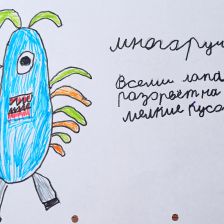 многоруч
Всеми лапа
разорвет на
мелкие кусо